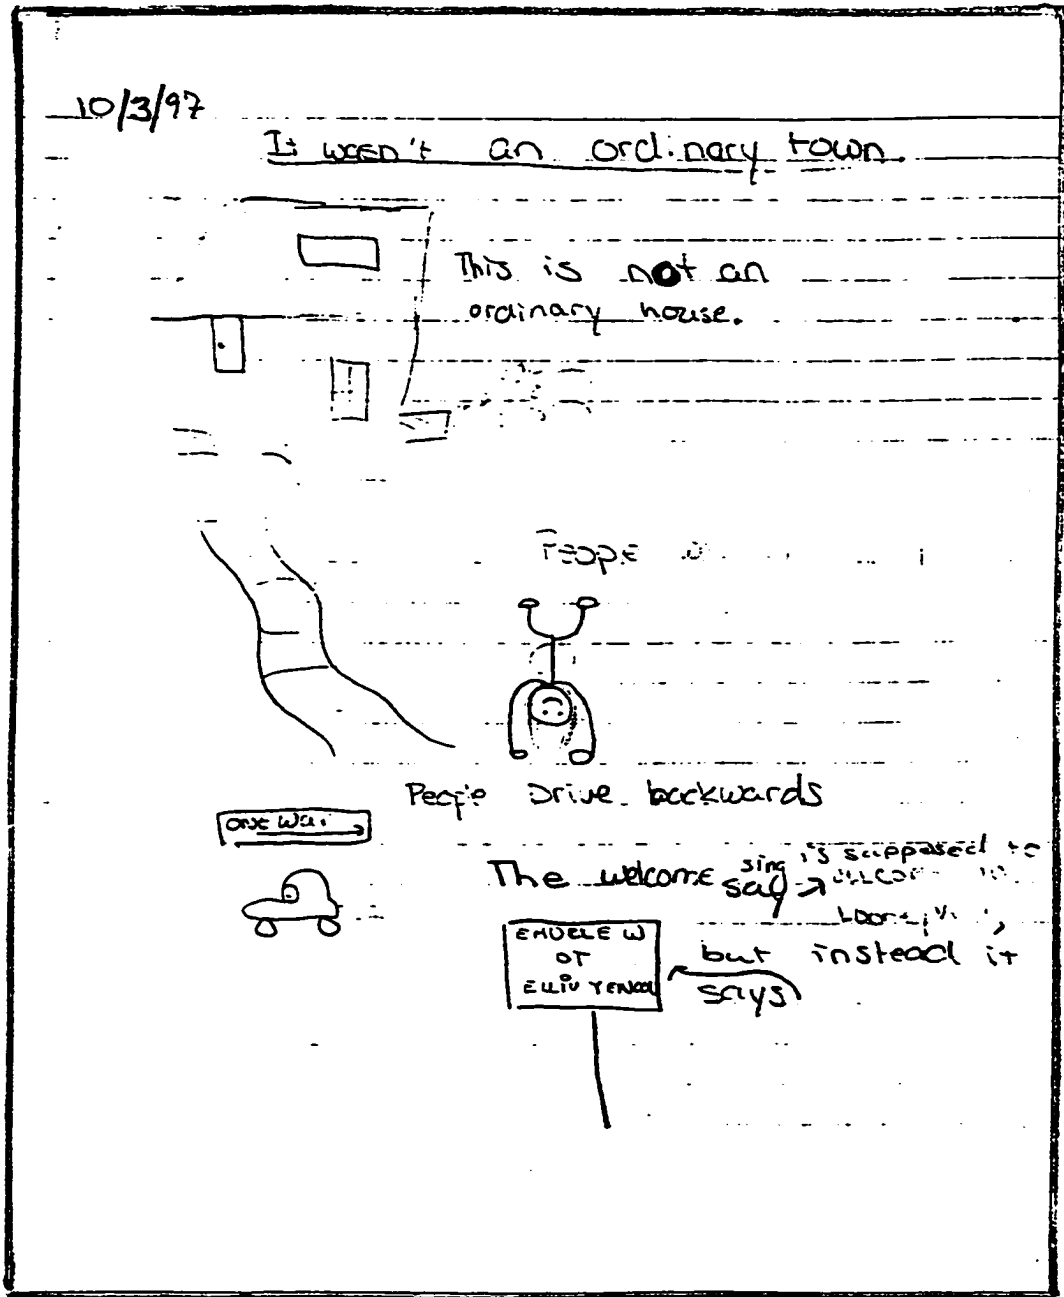 10/3/97
It wasn't an ordinary town.
This is not an
ordinary house.
PEOPLE
People Drive backwards
ONE WAY
The welcome sing is supposed to
say
but instead it
says
OT